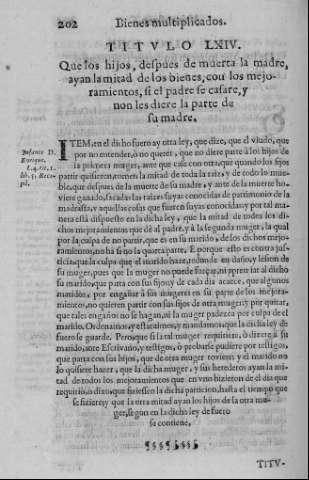 202 Bienes multiplicados.
TITVLO LXIV.
Que los hijos, despues de muerta la madre,
ayan la mitad de los bienes, con los mejo-
ramientos, si el padre se casare, y
non les diere la parte de
su madre.
Infante D.
Enrique,
l.4.tit.1.
lib. 5. Recopil.
ITEM, en el dicho fuero ay otra ley, que dize, que el viudo, que
por no entender, ò no querer, que no diere parte à los hijos de
la primera muger, ante que case con otra, que quando los fijos
partir quisieren, tomen la mitad de toda la raiz, y de todo lo mue-
ble, que despues de la muerte de su madre, y ante de la muerte ho-
viere ganado, sacadas las raizes suyas conocidas de patrimonio de la
madrastra, y aquellas cosas que fueren suyas conocidas: y por tal ma-
nera està dispuesto en la dicha ley, que la mitad de todos los di-
chos mejoramientos que dè al padre, y à la segunda muger, la qual
por la culpa de no partir, que es en su marido, de los dichos mejo-
ramientos, no hà si no la quarta parte. E porque esto es contra jus-
ticia, que la culpa que el marido haze, redunde en daño, y lesion de
su muger, pues que la muger no puede forçar, ni apremiar al dicho
su marido, que parta con sus fijos: y de cada dia acaece, que algunos
maridos, por engañar à sus mugeres en su parte de los mejora-
mientos, no quieren partir con sus fijos de otra muger: y por quitar,
que tales engaños no se hagan, ni la muger padezca por culpa de el
marido, Ordenamos, y establimos, y mandamos, que la dicha ley de
fuero se guarde. Pero que si la tal muger requiriere, ò dixere à su
marido, ante Escrivano, y testigos, ò probarse pudiere por testigos,
que parta con sus hijos, que de otra muger toviere, y el marido no
lo quisiere hazer, que la dicha muger, y sus herederos ayan la mi-
tad de todos los mejoramientos que en vno hizieron de el dia que
requiriò, ò dixo, que fiziessen la dicha particion, hasta el tiempo que
se fiziere; y que la otra mitad ayan los hijos de la otra mu-
ger, segun en la dicha ley de fuero
se contiene,
TITV-